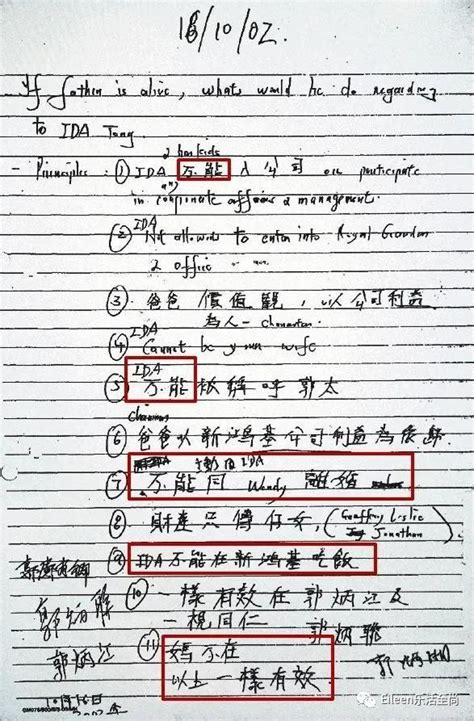 18/10/02.
If father is alive, whats would he do regarding
to IDA Tong
2 her kids
- Principles : ① IDA 不能入公司 or participate
in corporate affairs & management.
② IDA Not allowed to enter into Royal Garden
2 office
③ 爸爸價值觀, 以公司利益
為人 - character
④ IDA Cannot be your wife
⑤ IDA 不能被稱呼郭太
chairman
⑥ 爸爸以新鴻基公司利益為依歸
IDA
⑦ 不能同 Wendy 離婚
8 財產只傳仔女, (Geoffrey Leslie
Jonathan)
⑨ IDA 不能在新鴻基吃飯
⑩ 一樣有效在郭炳江及
一視同仁 郭炳聯
郭炳江
⑪ 媽不在
以上一樣有效
10月16日
Eileen乐活至尚